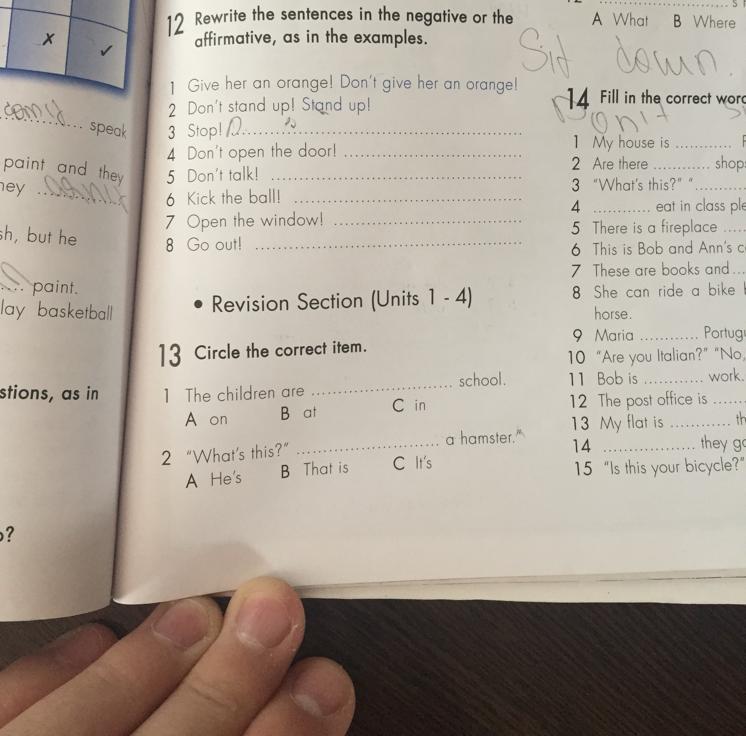 speak
paint and they
sh, but he
paint.
lay basketball
stions, as in
o?
12 Rewrite the sentences in the negative or the
affirmative, as in the examples.
1 Give her an orange! Don't give her an orange!
2 Don't stand up! Stand up!
3 Stop! D
4 Don't open the door!
5 Don't talk!
6 Kick the ball!
7 Open the window!
8 Go out!
• Revision Section (Units 1 - 4)
13 Circle the correct item.
1 The children are ........................ school.
A on B at C in
2 "What's this?" ........................ a hamster."
A He's B That is C It's
A What B Where
Sit down.
14 Fill in the correct word
Don't si
1 My house is ............
2 Are there ............ shop
3 "What's this?" "............
4 ............ eat in class ple
5 There is a fireplace .....
6 This is Bob and Ann's c
7 These are books and ...
8 She can ride a bike b
horse.
9 Maria ............ Portugu
10 "Are you Italian?" "No,
11 Bob is ............ work.
12 The post office is .......
13 My flat is ............ th
14 .................. they go
15 "Is this your bicycle?"